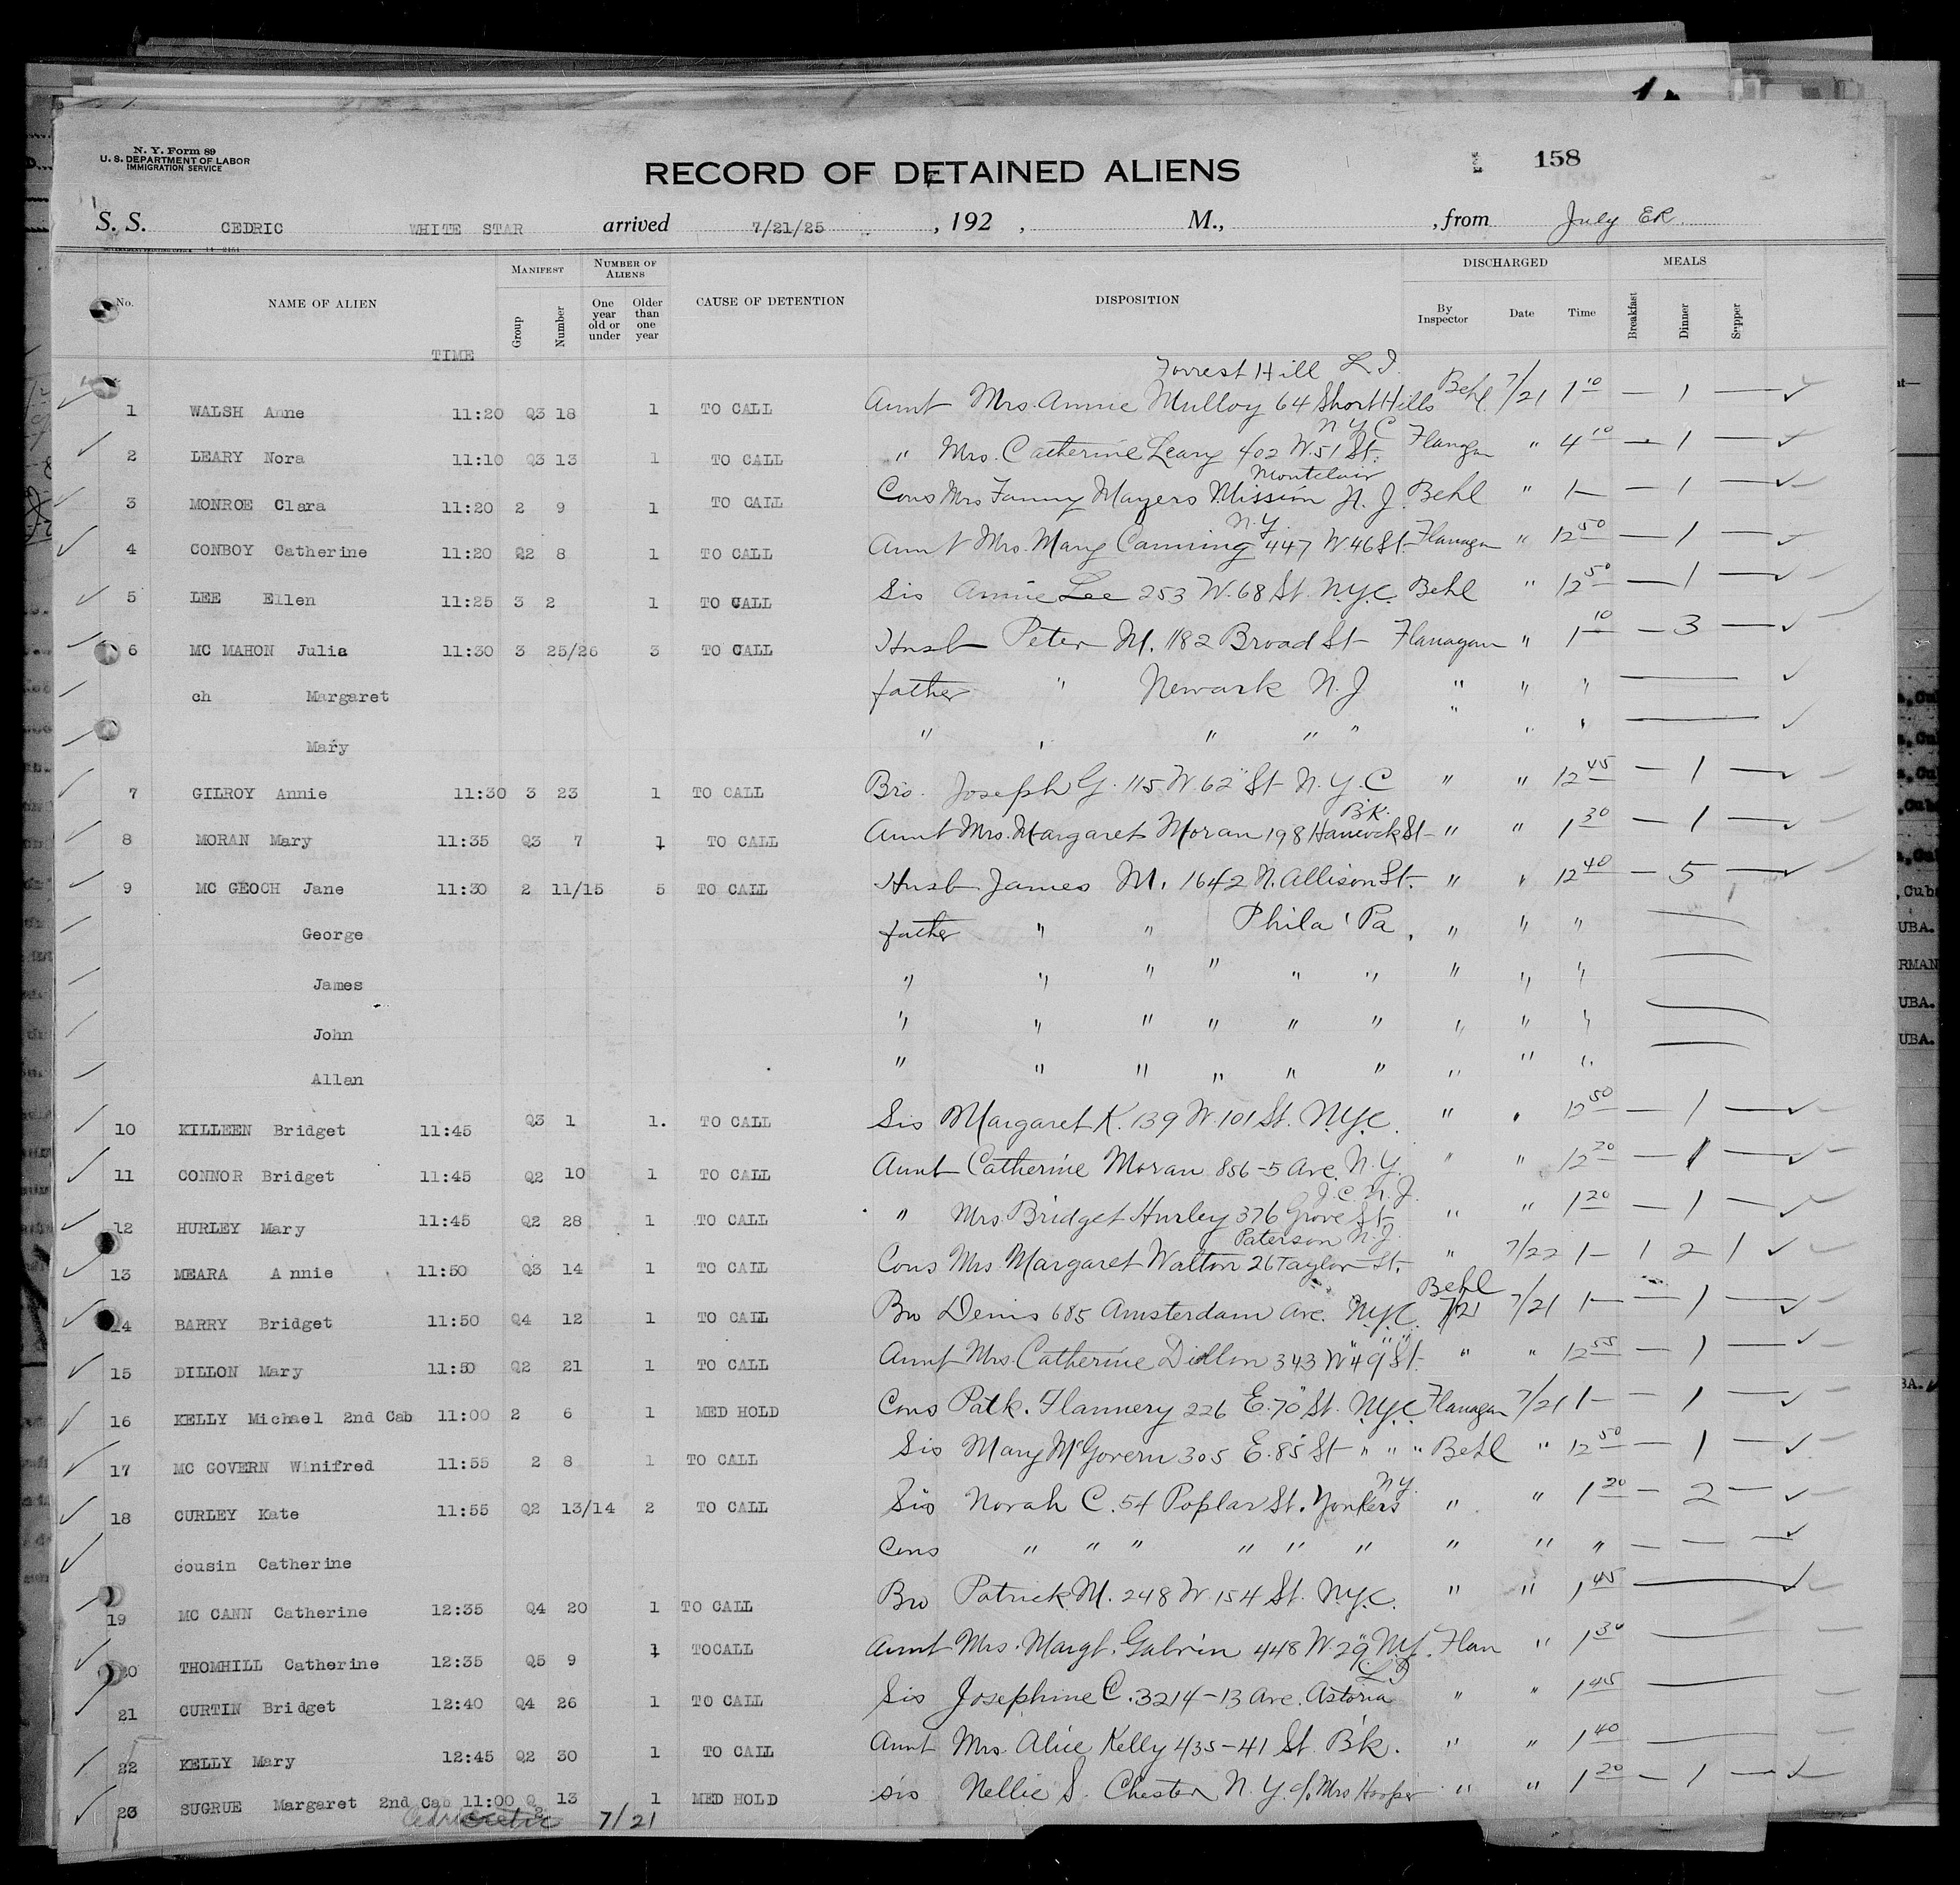 N. Y. Form 89
U. S. DEPARTMENT OF LABOR
IMMIGRATION SERVICE
RECORD OF DETAINED ALIENS
158
S. S. CEDRIC WHITE STAR arrived 7/21/25, 192 , M., , from July ER
No. NAME OF ALIEN TIME MANIFEST Group Number NUMBER OF ALIENS One year old or under Older than one year CAUSE OF DETENTION DISPOSITION DISCHARGED By Inspector Date Time MEALS Breakfast Dinner Supper
Forrest Hill L.I.
1 WALSH Anne 11:20 Q3 18 1 TO CALL Aunt Mrs. Annie Mulloy 64 Short Hills Behl 7/21 1 10 — 1 — ✓
N Y C
2 LEARY Nora 11:10 Q3 13 1 TO CALL " Mrs. Catherine Leary 402 W. 51 St. Flanagan " 4 10 — 1 — ✓
Montclair
3 MONROE Clara 11:20 2 9 1 TO CALL Cous Mrs Fanny Mayers Mission N. J. Behl " 1— — 1 — ✓
N.Y.
4 CONBOY Catherine 11:20 Q2 8 1 TO CALL Aunt Mrs. Mary Canning 447 W 46 St. Flanagan " 12 50 — 1 — ✓
5 LEE Ellen 11:25 3 2 1 TO CALL Sis Annie Lee 253 W. 68 St. N.Y.C. Behl " 12 50 — 1 — ✓
6 MC MAHON Julia 11:30 3 25/26 3 TO CALL Husb Peter M. 182 Broad St Flanagan " 1 10 — 3 — ✓
ch Margaret father " Newark N. J " " " — ✓
Mary " " " " " " " " — ✓
7 GILROY Annie 11:30 3 23 1 TO CALL Bro. Joseph G. 115 W. 62" St N. Y. C " " 12 45 — 1 — ✓
B'k.
8 MORAN Mary 11:35 Q3 7 1 TO CALL Aunt Mrs. Margaret Moran 198 Hancock St " " 1 30 — 1 — ✓
9 MC GEOCH Jane 11:30 2 11/15 5 TO CALL Husb James M. 1642 N. Allison St. " " 12 40 — 5 — ✓
George father " " Phila' Pa. " " " —
James " " " " " " " " " —
John " " " " " " " " " —
Allan " " " " " " " " " —
10 KILLEEN Bridget 11:45 Q3 1 1. TO CALL Sis Margaret K. 139 W. 101 St. N.Y.C. " " 12 50 — 1 — ✓
11 CONNOR Bridget 11:45 Q2 10 1 TO CALL Aunt Catherine Moran 856-5 Ave. N.Y. " " 12 20 — 1 — ✓
J. C. N. J.
12 HURLEY Mary 11:45 Q2 28 1 TO CALL " Mrs. Bridget Hurley 376 Grove St " " 1 20 — 1 — ✓
Paterson N.J.
13 MEARA Annie 11:50 Q3 14 1 TO CALL Cous Mrs Margaret Walton 26 Taylor St. " 7/22 1— 1 2 1 ✓
Behl
14 BARRY Bridget 11:50 Q4 12 1 TO CALL Bro Denis 685 Amsterdam Ave. N.Y.C. 7/21 7/21 1— — 1 — ✓
" " "
15 DILLON Mary 11:50 Q2 21 1 TO CALL Aunt Mrs. Catherine Dillon 343 W 49 St. " " 12 55 — 1 — ✓
16 KELLY Michael 2nd Cab 11:00 2 6 1 MED HOLD Cous Patk. Flannery 226 E. 70" St. N.Y.C. Flanagan 7/21 1— — 1 — ✓
17 MC GOVERN Winifred 11:55 2 8 1 TO CALL Sis Mary McGovern 305 E. 85 St " " " Behl " 12 50 — 1 — ✓
N.Y.
18 CURLEY Kate 11:55 Q2 13/14 2 TO CALL Sis Norah C. 54 Poplar St. Yonkers " " 1 20 — 2 — ✓
cousin Catherine Cous " " " " " " " " " — — — ✓
19 MC CANN Catherine 12:35 Q4 20 1 TO CALL Bro Patrick M. 248 W. 154 St. N.Y.C. " " 1 45 — ✓
20 THOMHILL Catherine 12:35 Q5 9 1 TOCALL Aunt Mrs. Margt. Galvin 448 W. 29" N.Y. Flan " 1 30 —
L I
21 CURTIN Bridget 12:40 Q4 26 1 TO CALL Sis Josephine C. 3214-13 Ave. Astoria " " 1 45 —
22 KELLY Mary 12:45 Q2 30 1 TO CALL Aunt Mrs. Alice Kelly 435-41 St. B'k. " " 1 40 —
23 SUGRUE Margaret 2nd Cab 11:00 Q 2 13 1 MED HOLD sis Nellie S. Chester N. Y. c/o Mrs Hooper " " 1 20 — 1 — ✓
Cedric 7/21